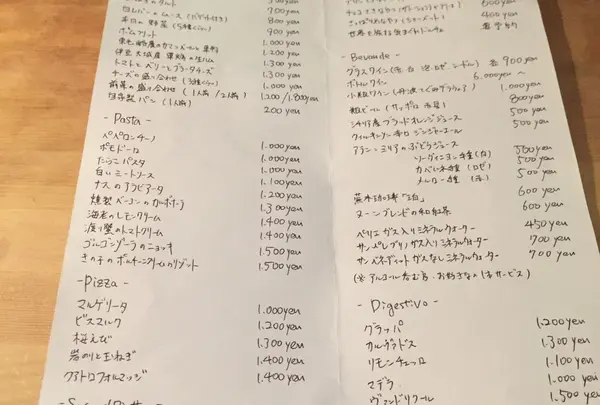 700yen
白レバーのムース(バゲット付き) 800yen
本日の野菜(5種くらい) 900yen
ポムフリット 1.000yen
1.200yen
伊豆 天城産 黒豚の生ハム 1.300yen
トマトとベリーとブラータチーズ 1.300yen
チーズの盛り合わせ 1.000yen
前菜の盛り合わせ(1人前/2人前) 1.200/1.800yen
自家製パン(1人前) 200yen
- Pasta -
ペペロンチーノ 1.000yen
ポモドーロ 1.000yen
たらこパスタ 1.000yen
白いミートソース 1.100yen
ナスのアラビアータ 1.200yen
燻製ベーコンのカルボナーラ 1.300yen
海老のレモンクリーム 1.400yen
渡り蟹のトマトクリーム 1.400yen
ゴルゴンゾーラのニョッキ 1.500yen
きの子のポルチーニクリームのリゾット 1.500yen
- Pizza -
マルゲリータ 1.000yen
ビスマルク 1.200yen
桜えび 1.300yen
岩のりと玉ねぎ 1.400yen
クアトロフォルマッジ 1.400yen
600yen
400yen
- Bevande -
グラスワイン(赤 白 泡 ロゼ シードル) 各900yen
ボトルワイン 6.000yen~
1.000yen
瓶ビール(サッポロ赤星) 800yen
シチリア産ブラッドオレンジジュース 500yen
ウィルキンソン辛口ジンジャーエール 500yen
アラン・ミリアのぶどうジュース
ソーヴィニヨン種(白) 500yen
カベルネ種(ロゼ) 500yen
メルロー種(赤) 500yen
600yen
ヌーンブレンドの和紅茶 600yen
ペリエ ガス入りミネラルウォーター 450yen
サンペレグリノ ガス入りミネラルウォーター 700yen
サンベネデット ガスなしミネラルウォーター 700yen
- Digestivo -
グラッパ 1.200yen
カルヴァドス 1.300yen
リモンチェッロ 1.100yen
マデラ 1.000yen
ヴァンドリクール 1.500yen